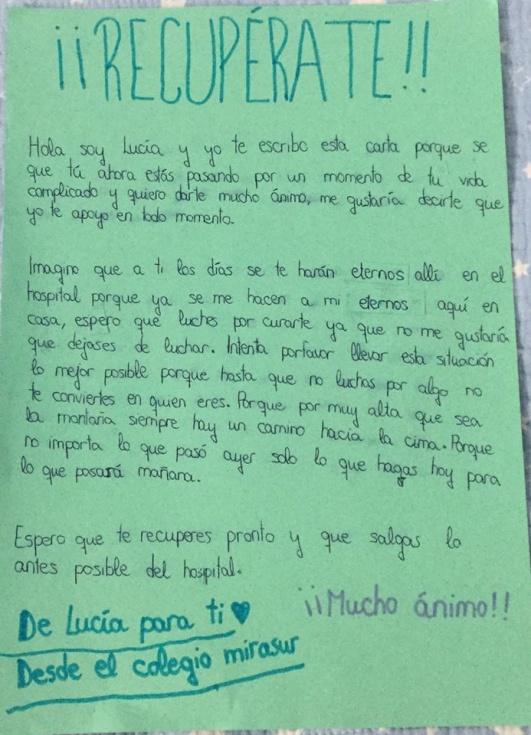 ¡¡RECUPÉRATE!!
Hola soy Lucía y yo te escribo esta carta porque se
que tú ahora estás pasando por un momento de tu vida
complicado y quiero darte mucho ánimo, me gustaría decirte que
yo te apoyo en todo momento.
Imagino que a ti los días se te harán eternos allí en el
hospital porque ya se me hacen a mi eternos aquí en
casa, espero que luches por curarte ya que no me gustaría
que dejases de luchar. Intenta porfavor llevar esta situación
lo mejor posible porque hasta que no luchas por algo no
te conviertes en quien eres. Porque por muy alta que sea
la montaña siempre hay un camino hacia la cima. Porque
no importa lo que pasó ayer solo lo que hagas hoy para
lo que pasará mañana.
Espero que te recuperes pronto y que salgas lo
antes posible del hospital.
¡¡Mucho ánimo!!
De Lucía para ti ♥
Desde el colegio mirasur